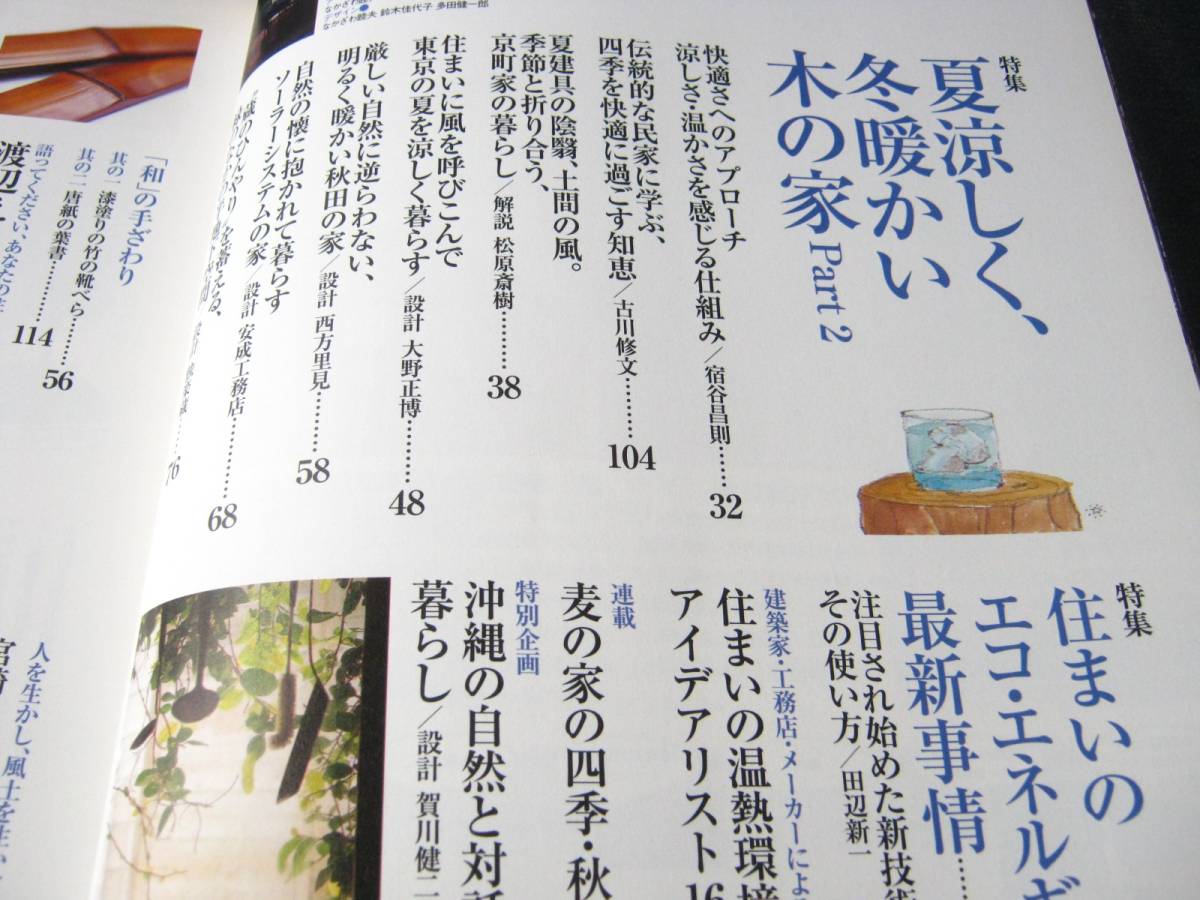 デザイン●
なかざわ睦夫 鈴木佳代子 多田健一郎
特集
夏涼しく、
冬暖かい
木の家 Part 2
快適さへのアプローチ
涼しさ・温かさを感じる仕組み/宿谷昌則……32
伝統的な民家に学ぶ、
四季を快適に過ごす知恵/古川修文……104
夏建具の陰翳、土間の風。
季節と折り合う、
京町家の暮らし/解説 松原斎樹……38
住まいに風を呼びこんで
東京の夏を涼しく暮らす/設計 大野正博……48
厳しい自然に逆らわない、
明るく暖かい秋田の家/設計 西方里見……58
自然の懐に抱かれて暮らす
ソーラーシステムの家/設計 安成工務店……68
のひんやりを蓄える、
76
特集
住まいの
エコ・エネルギ
最新事情……
注目され始めた新技術
その使い方/田辺新一
建築家・工務店・メーカーによる
住まいの温熱環境
アイデアリスト 16
連載
麦の家の四季・秋
特別企画
沖縄の自然と対話
暮らし/設計 賀川健二
「和」の手ざわり
其の一 漆塗りの竹の靴べら……56
其の二 唐紙の葉書……114
語ってください、あなたの
渡辺
人を生かし、風土を生